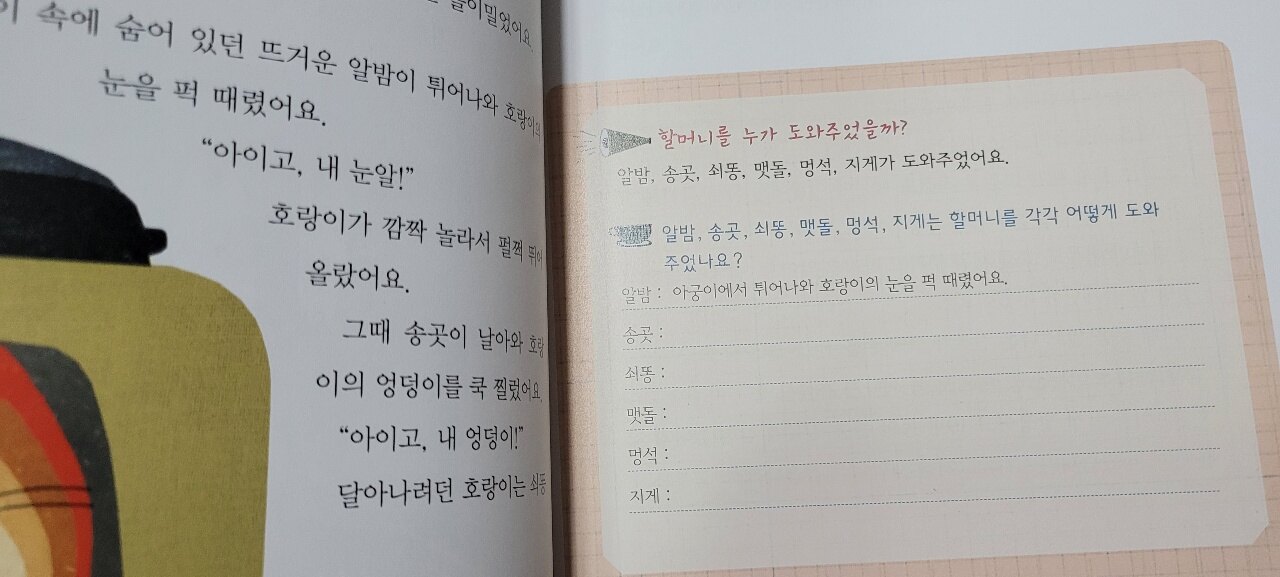 들이밀었어요.
속에 숨어 있던 뜨거운 알밤이 튀어나와 호랑이의
눈을 퍽 때렸어요.
“아이고, 내 눈알!”
호랑이가 깜짝 놀라서 펄쩍 뛰어
올랐어요.
그때 송곳이 날아와 호랑
이의 엉덩이를 쿡 찔렀어요.
“아이고, 내 엉덩이!”
달아나려던 호랑이는 쇠똥
할머니를 누가 도와주었을까?
알밤, 송곳, 쇠똥, 맷돌, 멍석, 지게가 도와주었어요.
알밤, 송곳, 쇠똥, 맷돌, 멍석, 지게는 할머니를 각각 어떻게 도와
주었나요?
알밤 : 아궁이에서 튀어나와 호랑이의 눈을 퍽 때렸어요.
송곳 :
쇠똥 :
맷돌 :
멍석 :
지게 :